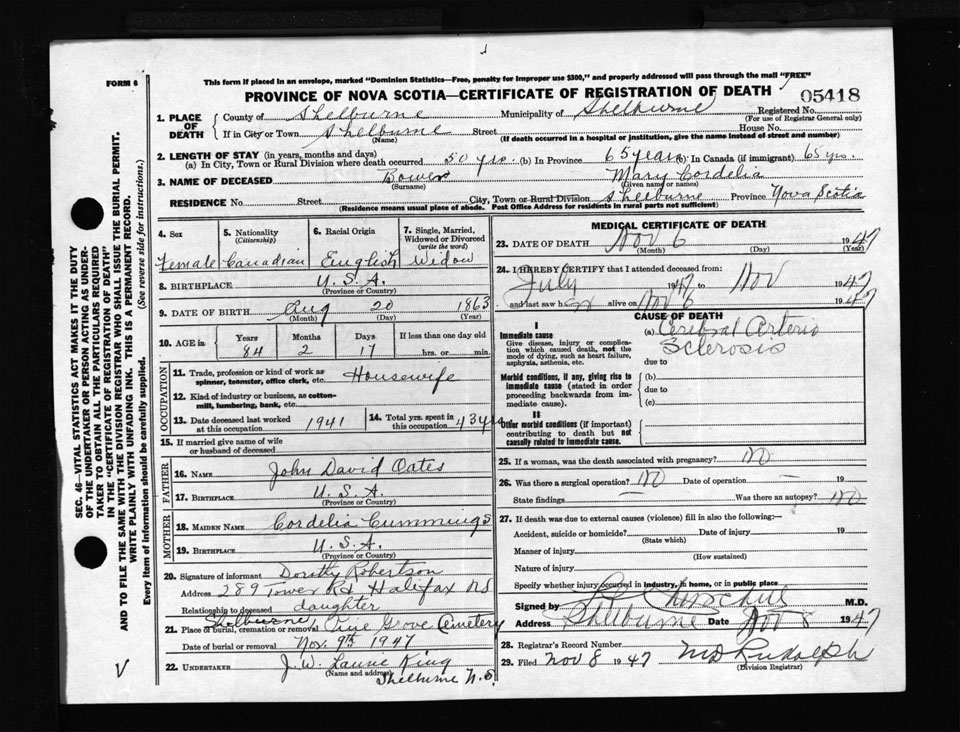 FORM 6
This form if placed in an envelope, marked "Dominion Statistics—Free, penalty for improper use $300," and properly addressed will pass through the mail "FREE"
PROVINCE OF NOVA SCOTIA—CERTIFICATE OF REGISTRATION OF DEATH
05418
1. PLACE OF DEATH
County of Shelburne Municipality of Shelburne Registered No.
(For use of Registrar General only)
If in City or Town Shelburne Street House No.
(Name) (If death occurred in a hospital or institution, give the name instead of street and number)
2. LENGTH OF STAY (in years, months and days)
(a) In City, Town or Rural Division where death occurred 50 yrs. (b) In Province 65 years (c) In Canada (if immigrant) 65 yrs.
3. NAME OF DECEASED Bower Mary Cordelia
(Surname) (Given name or names)
RESIDENCE No. Street City, Town or Rural Division Shelburne Province Nova Scotia
(Residence means usual place of abode. Post Office Address for residents in rural parts not sufficient)
4. Sex
Female
5. Nationality
(Citizenship)
Canadian
6. Racial Origin
English
7. Single, Married, Widowed or Divorced
(write the word)
Widow
8. BIRTHPLACE U.S.A.
(Province or Country)
9. DATE OF BIRTH Aug 20 1863
(Month) (Day) (Year)
10. AGE in
Years Months Days If less than one day
84 2 17 hrs. or min.
OCCUPATION
11. Trade, profession or kind of work as spinner, teamster, office clerk, etc. Housewife
12. Kind of industry or business, as cotton-mill, lumbering, bank, etc.
13. Date deceased last worked at this occupation 1941
14. Total yrs. spent in this occupation 43 yrs
15. If married give name of wife or husband of deceased
FATHER
16. NAME John David Oates
17. BIRTHPLACE U.S.A.
(Province or Country)
MOTHER
18. MAIDEN NAME Cordelia Cummings
19. BIRTHPLACE U.S.A.
(Province or Country)
20. Signature of informant Dorothy Robertson
Address 289 Tower Rd Halifax NS
Relationship to deceased daughter
21. Place of burial, cremation or removal Shelburne Pine Grove Cemetery
Date of burial or removal Nov. 9th 1947
22. UNDERTAKER J. W. Laurie King
(Name and address) Shelburne N.S.
MEDICAL CERTIFICATE OF DEATH
23. DATE OF DEATH Nov 6 1947
(Month) (Day) (Year)
24. I HEREBY CERTIFY that I attended deceased from:
July 1947 to Nov 1947
and last saw h er alive on Nov 6 1947
CAUSE OF DEATH
I
Immediate cause
Give disease, injury or complication which caused death, not the mode of dying, such as heart failure, asphyxia, asthenia, etc.
(a) Cerebral Arterio Sclerosis
due to
Morbid conditions, if any, giving rise to immediate cause (stated in order proceeding backwards from immediate cause).
(b)
due to
(c)
II
Other morbid conditions (if important) contributing to death but not causally related to immediate cause.
25. If a woman, was the death associated with pregnancy? No
26. Was there a surgical operation? No Date of operation — 19
State findings — Was there an autopsy? No
27. If death was due to external causes (violence) fill in also the following:—
Accident, suicide or homicide? Date of injury 19
(State which)
Manner of injury
(How sustained)
Nature of injury
Specify whether injury occurred in industry, in home, or in public place
Signed by M.D.
Address Shelburne Date Nov 8 1947
28. Registrar's Record Number
29. Filed Nov 8 1947 MD Rudolph
(Division Registrar)
SEC. 46—VITAL STATISTICS ACT MAKES IT THE DUTY
OF THE UNDERTAKER OR PERSON ACTING AS UNDER-
TAKER TO OBTAIN ALL THE PARTICULARS REQUIRED
IN THE "CERTIFICATE OF REGISTRATION OF DEATH"
AND TO FILE THE SAME WITH THE DIVISION REGISTRAR WHO SHALL ISSUE THE BURIAL PERMIT.
WRITE PLAINLY WITH UNFADING INK. THIS IS A PERMANENT RECORD.
Every item of information should be carefully supplied. (See reverse side for instructions.)